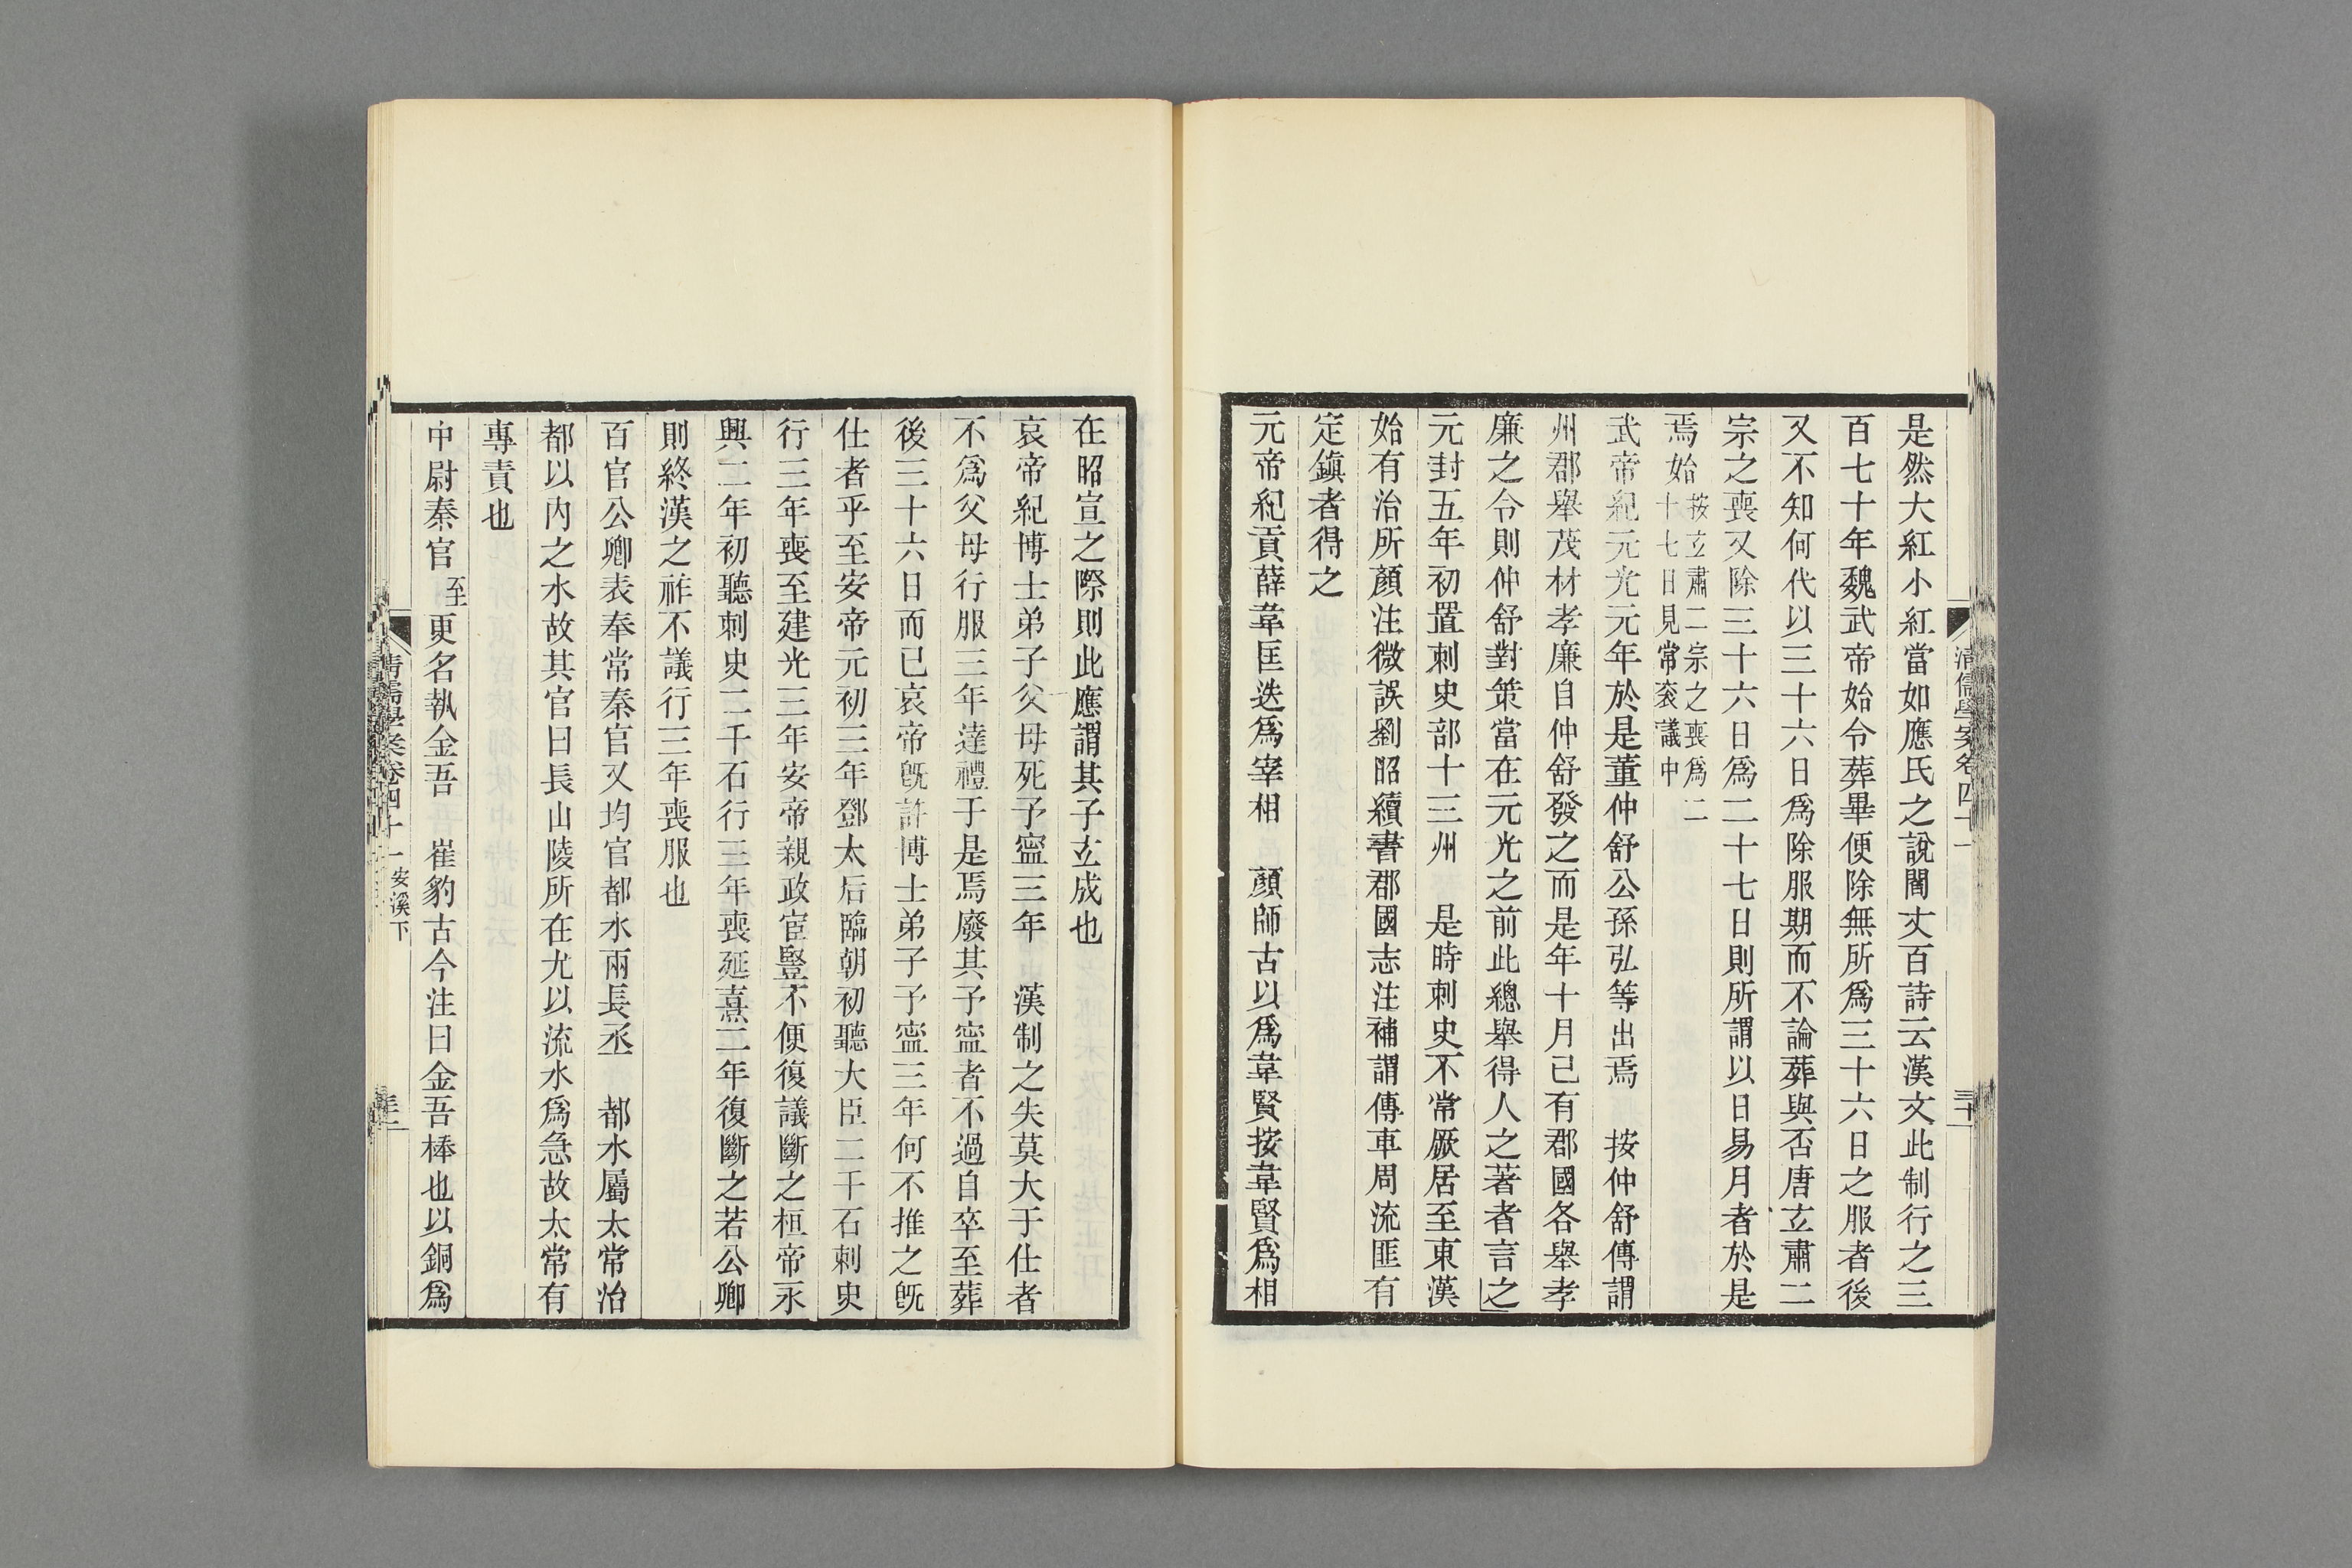 是然大紅小紅當如應氏之說閻丈百詩云漢文此制行之三
百七十年魏武帝始令葬畢便除無所爲三十六日之服者後
又不知何代以三十六日爲除服期而不論葬與否唐玄肅二
宗之喪又除三十六日爲二十七日則所謂以日易月者於是
焉始按玄肅二宗之喪爲二十七日見常袞議中
武帝紀元光元年於是董仲舒公孫弘等出焉　按仲舒傳謂
州郡舉茂材孝廉自仲舒發之而是年十月已有郡國各舉孝
廉之令則仲舒對策當在元光之前此總舉得人之著者言之
元封五年初置刺史部十三州　是時刺史不常厥居至東漢
始有治所顏注微誤劉昭續書郡國志注補謂傳車周流匪有
定鎮者得之
元帝紀貢薛韋匡迭爲宰相　顏師古以爲韋賢按韋賢爲相
清儒學案卷四十一
在昭宣之際則此應謂其子玄成也
哀帝紀博士弟子父母死予寧三年　漢制之失莫大于仕者
不爲父母行服三年達禮于是焉廢其予寧者不過自卒至葬
後三十六日而已哀帝旣許博士弟子予寧三年何不推之旣
仕者乎至安帝元初三年鄧太后臨朝初聽大臣二千石刺史
行三年喪至建光三年安帝親政宦豎不便復議斷之桓帝永
興二年初聽刺史二千石行三年喪延熹二年復斷之若公卿
則終漢之祚不議行三年喪服也
百官公卿表奉常秦官又均官都水兩長丞　都水屬太常治
都以內之水故其官曰長山陵所在尤以流水爲急故太常有
專責也
中尉秦官至更名執金吾　崔豹古今注曰金吾棒也以銅爲
清儒學案卷四十一　安溪下